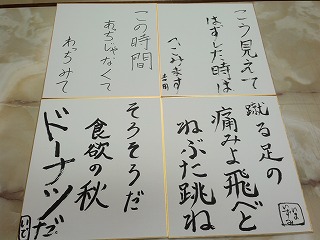 こう見えて
はずした時は
へこみます
この時間
あっちじゃなくて
わっちみて
蹴る足の
痛みよ飛べと
ねぶた跳ね
いまいずみ
そろそろだ
食欲の秋
ドーナツだ
いと